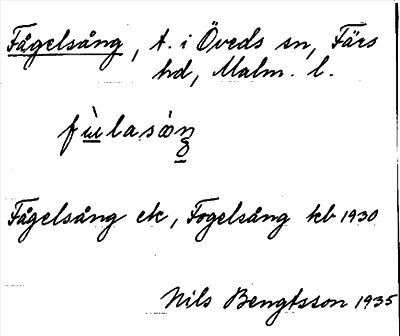 Fågelsång, t. i Öveds sn, Färs
hd, Malm. l.
Fågelsång ek, Fogelsång kb 1930
Nils Bengtsson 1935